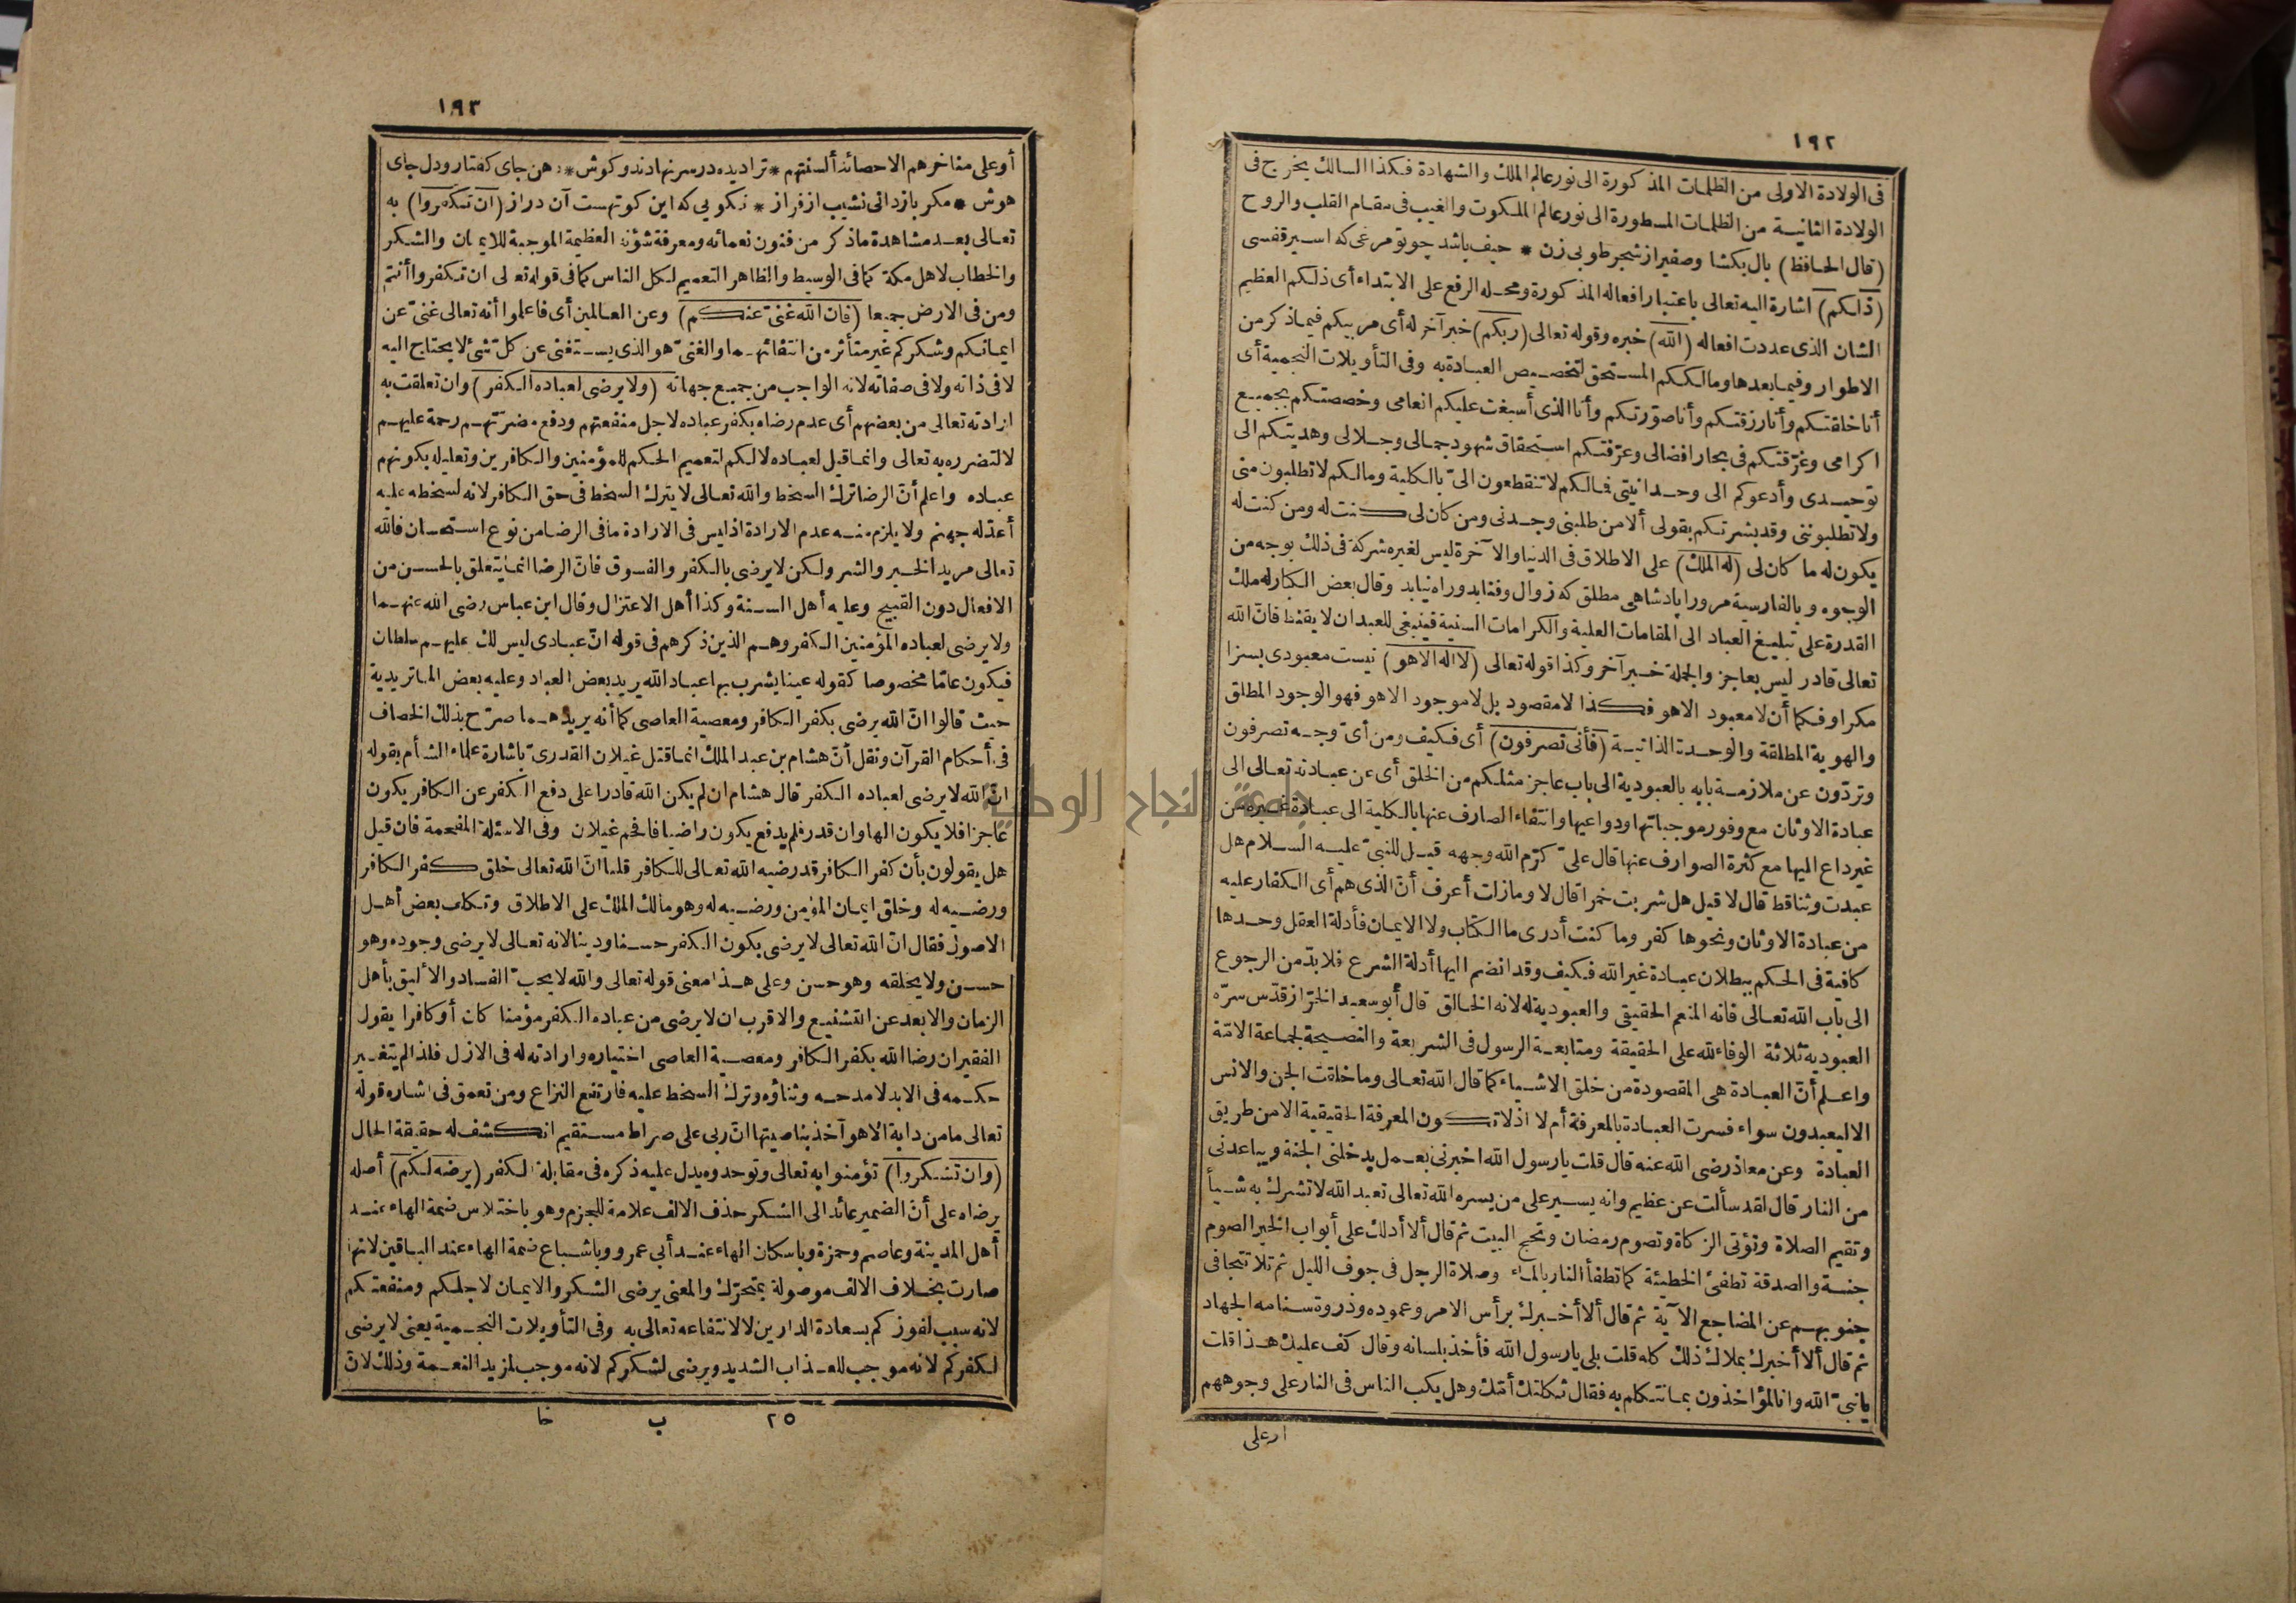 ١٩٢
فى الولادة الاولى من الظلمات المذكورة الى نور عالم الملك والشهادة فكذا السالك يخرج فى
الولادة الثانية من الظلمات المسطورة الى نور عالم الملكوت والغيب فى مقام القلب والروح
(قال الحافظ) بال بكشا وصفير از شجر طوبى زن * حيف باشد چو تو مرغى كه اسير قفسى
(ذلكم) اشارة اليه تعالى باعتبار افعاله المذكورة ومحله الرفع على الابتداء أى ذلكم العظيم
الشان الذى عددت افعاله (الله) خبره وقوله تعالى (ربكم) خبر آخر له أى مربيكم فيما ذكر من
الاطوار وفيما بعدها ومالككم المستحق لتخصيص العبادة به وفى التأويلات النجمية أى
أنا خلقتكم وأنا رزقتكم وأنا صوّرتكم وأنا الذى أسبغت عليكم انعامى وخصصتكم بجميع
اكرامى وغرّقتكم فى بحار افضالى وعرّفتكم استحقاق شهود جمالى وجلالى وهديتكم الى
توحيدى وأدعوكم الى وحدانيتى فمالكم لا تنقطعون الىّ بالكلية ومالكم لا تطلبون منى
ولا تطلبوننى وقد بشرتكم بقولى ألا من طلبنى وجدنى ومن كان لى كنت له ومن كنت له
يكون له ما كان لى (له الملك) على الاطلاق فى الدنيا والآخرة ليس لغيره شركة فى ذلك بوجه من
الوجوه وبالفارسية مرورا پادشاهى مطلق كه زوال وفنا بدو راه نيابد وقال بعض الكبار له ملك
القدرة على تبليغ العباد الى المقامات العلية والكرامات السنية فينبغى للعبد ان لا يقنط فانّ الله
تعالى قادر ليس بعاجز والجملة خبر آخر وكذا قوله تعالى (لا اله الا هو) نيست معبودى بسزا
مكر او فكما أن لا معبود الا هو فكذا لا مقصود بل لا موجود الا هو فهو الوجود المطلق
والهوية المطلقة والوحدة الذاتية (فأنى تصرفون) أى فكيف ومن أىّ وجه تصرفون
وتردّون عن ملازمة بابه بالعبودية الى باب عاجز مثلكم من الخلق أى عن عبادته تعالى الى
عبادة الاوثان مع وفور موجباتها ودواعيها وانتفاء الصارف عنها بالكلية الى عبادة غيره من
غير داع اليها مع كثرة الصوارف عنها قال علىّ كرّم الله وجهه قيل للنبىّ عليه السلام هل
عبدت وثنا قط قال لا قيل هل شربت خمرا قال لا وما زلت أعرف أنّ الذى هم أى الكفار عليه
من عبادة الاوثان ونحوها كفر وما كنت أدرى ما الكتاب ولا الايمان فأدلة العقل وحدها
كافية فى الحكم ببطلان عبادة غير الله فكيف وقد انضم اليها أدلة الشرع فلا بدّ من الرجوع
الى باب الله تعالى فانه المنعم الحقيقى والعبودية له لانه الخالق قال أبو سعيد الخرّاز قدّس سرّه
العبودية ثلاثة الوفاء لله على الحقيقة ومتابعة الرسول فى الشريعة والنصيحة لجماعة الامّة
واعلم أنّ العبادة هى المقصودة من خلق الاشياء كما قال الله تعالى وما خلقت الجن والانس
الا ليعبدون سواء فسرت العبادة بالمعرفة أم لا اذ لا تكون المعرفة الحقيقية الا من طريق
العبادة وعن معاذ رضى الله عنه قال قلت يا رسول الله اخبرنى بعمل يدخلنى الجنة ويباعدنى
من النار قال لقد سألت عن عظيم وانه يسير على من يسره الله تعالى تعبد الله لا تشرك به شيأ
وتقيم الصلاة وتؤتى الزكاة وتصوم رمضان وتحج البيت ثم قال ألا أدلك على أبواب الخير الصوم
جنة والصدقة تطفئ الخطيئة كما تطفأ النار بالماء وصلاة الرجل فى جوف الليل ثم تلا تتجافى
جنوبهم عن المضاجع الآية ثم قال ألا أخبرك برأس الامر وعموده وذروة سنامه الجهاد
ثم قال ألا أخبرك بملاك ذلك كله قلت بلى يا رسول الله فأخذ بلسانه وقال كف عليك هذا قلت
يا نبىّ الله وانا لمؤاخذون بما نتكلم به فقال ثكلتك أمّك وهل يكب الناس فى النار على وجوههم
١٩٣
أو على مناخرهم الا حصائد ألسنتهم * ترا ديده در سر نهادند وكوش * دهن جاى كفتار ودل جاى
هوش * مكر باز دانى نشيب از فراز * نكويى كه اين كوتهست آن دراز (ان تكفروا) به
تعالى بعد مشاهدة ما ذكر من فنون نعمائه ومعرفة شؤنه العظيمة الموجبة للايمان والشكر
والخطاب لاهل مكة كما فى الوسيط والظاهر التعميم لكل الناس كما فى قوله تعالى ان تكفروا أنتم
ومن فى الارض جميعا (فان الله غنىّ عنكم) وعن العالمين أى فاعلموا أنه تعالى غنىّ عن
ايمانكم وشكركم غير متأثر من انتفائهما والغنىّ هو الذى يستغنى عن كلّ شئ لا يحتاج اليه
لا فى ذاته ولا فى صفاته لانه الواجب من جميع جهاته (ولا يرضى لعباده الكفر) وان تعلقت به
ارادته تعالى من بعضهم أى عدم رضاه بكفر عباده لاجل منفعتهم ودفع مضرّتهم رحمة عليهم
لا لتضرره به تعالى وانما قيل لعباده لا لكم لتعميم الحكم للمؤمنين والكافرين وتعليله بكونهم
عباده واعلم أنّ الرضا ترك السخط والله تعالى لا يترك السخط فى حق الكافر لانه لسخطه عليه
أعدّ له جهنم ولا يلزم منه عدم الارادة اذ ليس فى الارادة ما فى الرضا من نوع استحسان فالله
تعالى مريد الخير والشر ولكن لا يرضى بالكفر والفسوق فانّ الرضا انما يتعلق بالحسن من
الافعال دون القبيح وعليه أهل السنة وكذا أهل الاعتزال وقال ابن عباس رضى الله عنهما
ولا يرضى لعباده المؤمنين الكفر وهم الذين ذكرهم فى قوله انّ عبادى ليس لك عليهم سلطان
فيكون عامّا مخصوصا كقوله عينا يشرب بها عباد الله يريد بعض العباد وعليه بعض الماتريدية
حيث قالوا انّ الله يرضى بكفر الكافر ومعصية العاصى كما أنه يريدهما صرّح بذلك الخصاف
فى أحكام القرآن ونقل أنّ هشام بن عبد الملك انما قتل غيلان القدرىّ باشارة علماء الشأم بقوله
انّ الله لا يرضى لعباده الكفر قال هشام ان لم يكن الله قادرا على دفع الكفر عن الكافر يكون
عاجزا فلا يكون الها وان قدر فلم يدفع يكون راضيا فافحم غيلان وفى الاسئلة المفحمة فان قيل
هل يقولون بأن كفر الكافر قد رضيه الله تعالى للكافر قلنا انّ الله تعالى خلق كفر الكافر
ورضيه له وخلق ايمان المؤمن ورضيه له وهو مالك الملك على الاطلاق وتكلف بعض أهل
الاصول فقال انّ الله تعالى لا يرضى بكون الكفر حسنا ودينا لانه تعالى لا يرضى وجوده وهو
حسن ولا يخلقه وهو حسن وعلى هذا معنى قوله تعالى والله لا يحبّ الفساد والأليق بأهل
الزمان والابعد عن التشنيع والاقرب ان لا يرضى من عباده الكفر مؤمنا كان أو كافرا يقول
الفقير ان رضا الله بكفر الكافر ومعصية العاصى اختياره وارادته له فى الازل فلذا لم يتغير
حكمه فى الابد لا مدحه وثناؤه وترك السخط عليه فارتفع النزاع ومن تعمق فى اشارة قوله
تعالى ما من دابة الا هو آخذ بناصيتها انّ ربى على صراط مستقيم انكشف له حقيقة الحال
(وان تشكروا) تؤمنوا به تعالى وتوحدوه يدل عليه ذكره فى مقابلة الكفر (يرضه لكم) أصله
يرضاه على أنّ الضمير عائد الى الشكر حذف الالف علامة للجزم وهو باختلاس ضمة الهاء عند
أهل المدينة وعاصم وحمزة وباسكان الهاء عند أبى عمرو وباشباع ضمة الهاء عند الباقين لانها
صارت بخلاف الالف موصولة بمتحرّك والمعنى يرضى الشكر والايمان لاجلكم ومنفعتكم
لانه سبب لفوزكم بسعادة الدارين لا لانتفاعه تعالى به وفى التأويلات النجمية يعنى لا يرضى
لكفركم لانه موجب للعذاب الشديد ويرضى لشكركم لانه موجب لمزيد النعمة وذلك لانّ
٢٥ ب خا
جامعة النجاح الوطنية